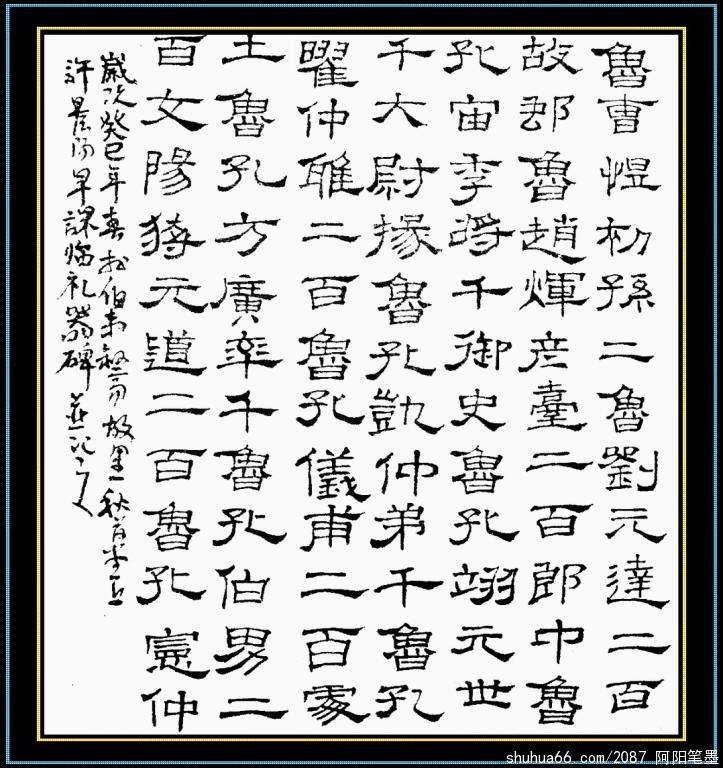 魯曹悝初孫二魯劉元達二百
故郵魯趙煇彥臺二百郎中魯
孔宙季將千御史魯孔翊元世
千大尉掾魯孔凱仲弟千魯孔
曜仲雅二百魯孔儀甫二百處
土魯孔方廣率千魯孔伯男二
百文陽蔣元道二百魯孔憲仲
歲次癸巳年春於伯故里秋
許早課臨礼器碑並记之
shuhua66.com/2087 阿阳笔墨